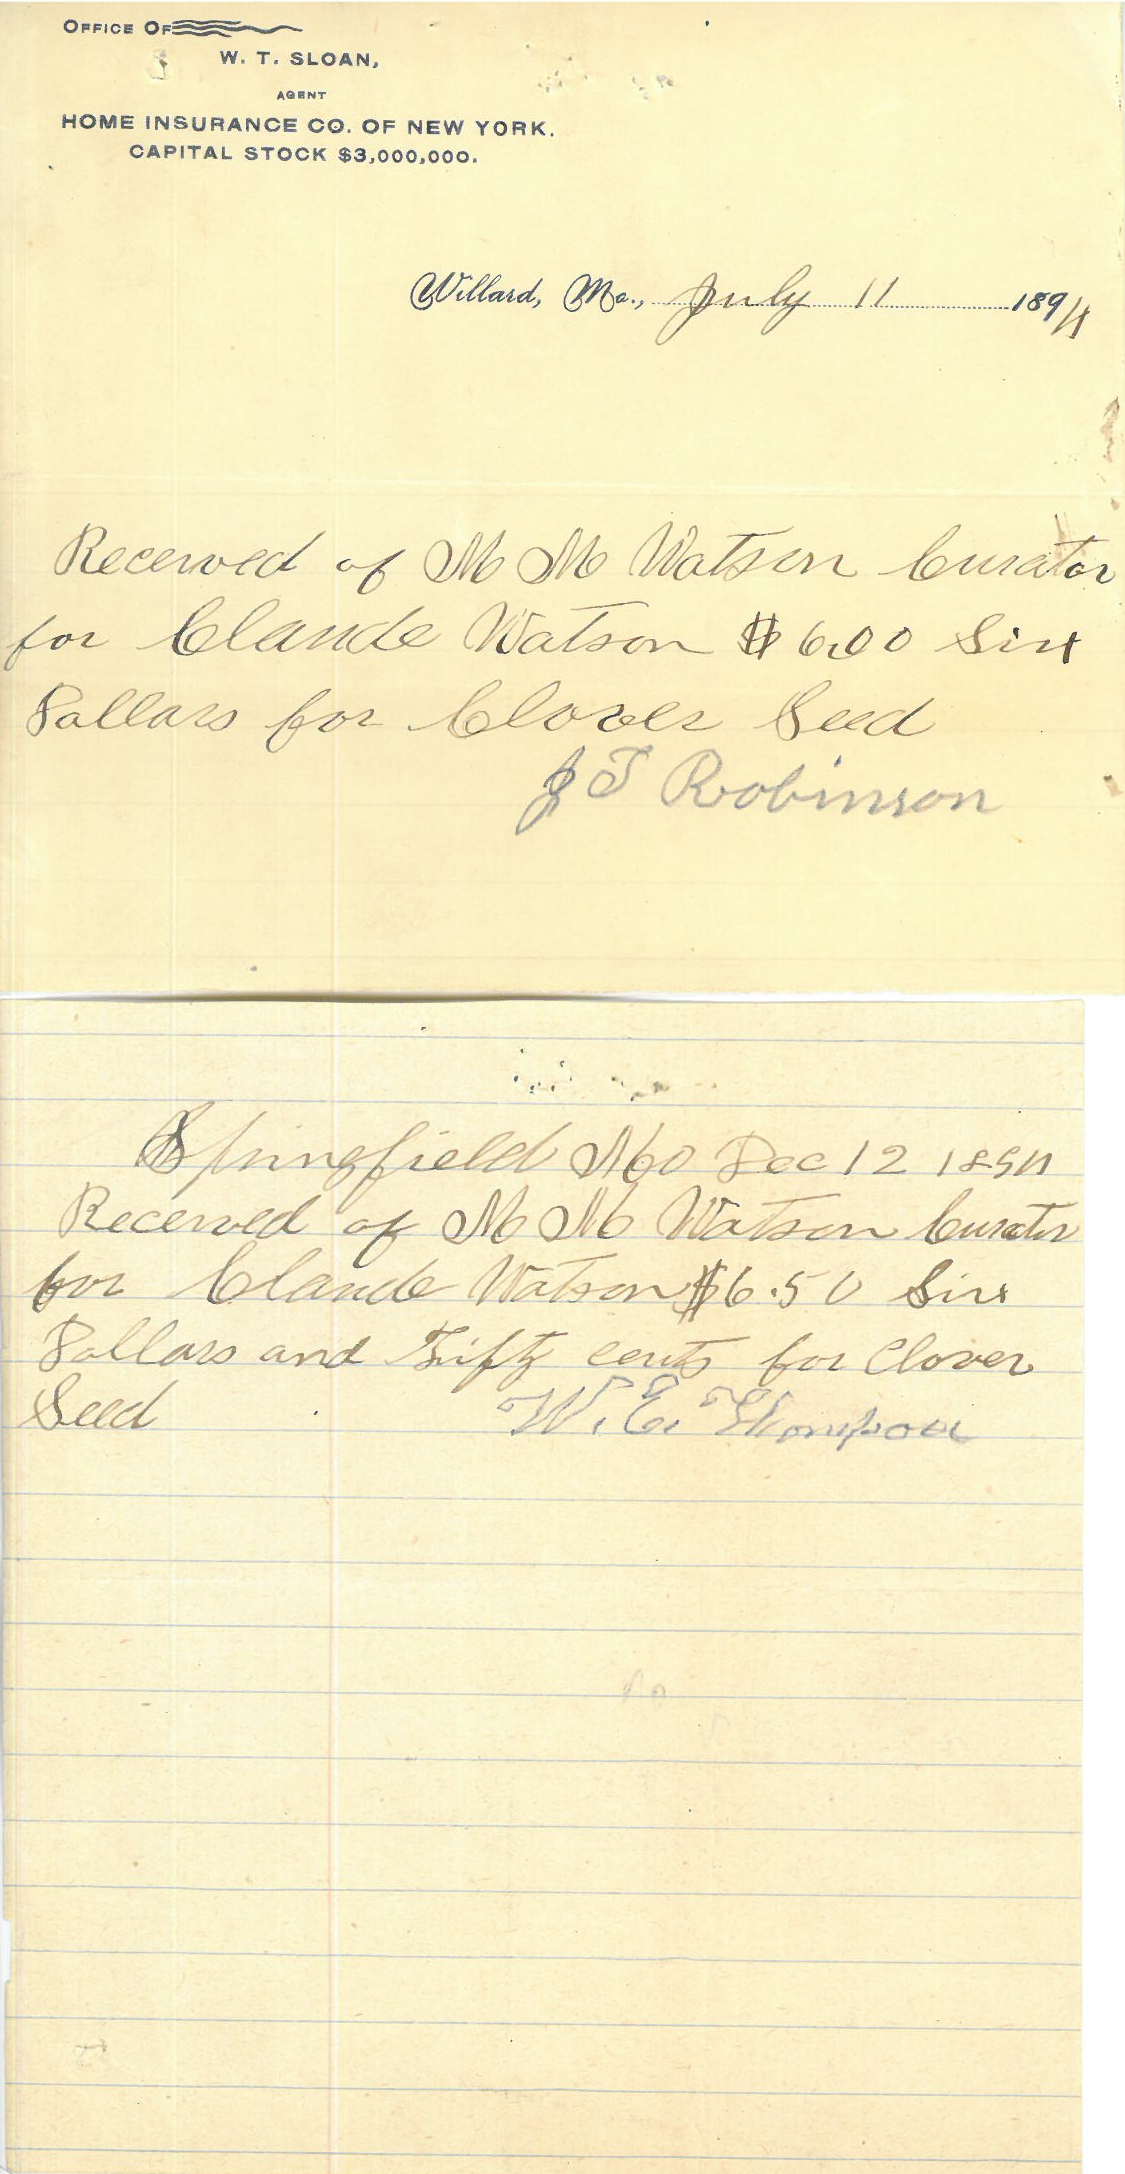 OFFICE OF
W. T. SLOAN,
AGENT
HOME INSURANCE CO. OF NEW YORK.
CAPITAL STOCK $3,000,000.
Willard, Mo., July 11 1894
Received of M M Watson Curator
for Claude Watson $6.00 Six
Dollars for Clover Seed
J T Robinson
Springfield Mo Dec 12 1894
Received of M M Watson Curator
for Claude Watson $6.50 Six
Dollars and Fifty cents for Clover
Seed W. E. Thompson